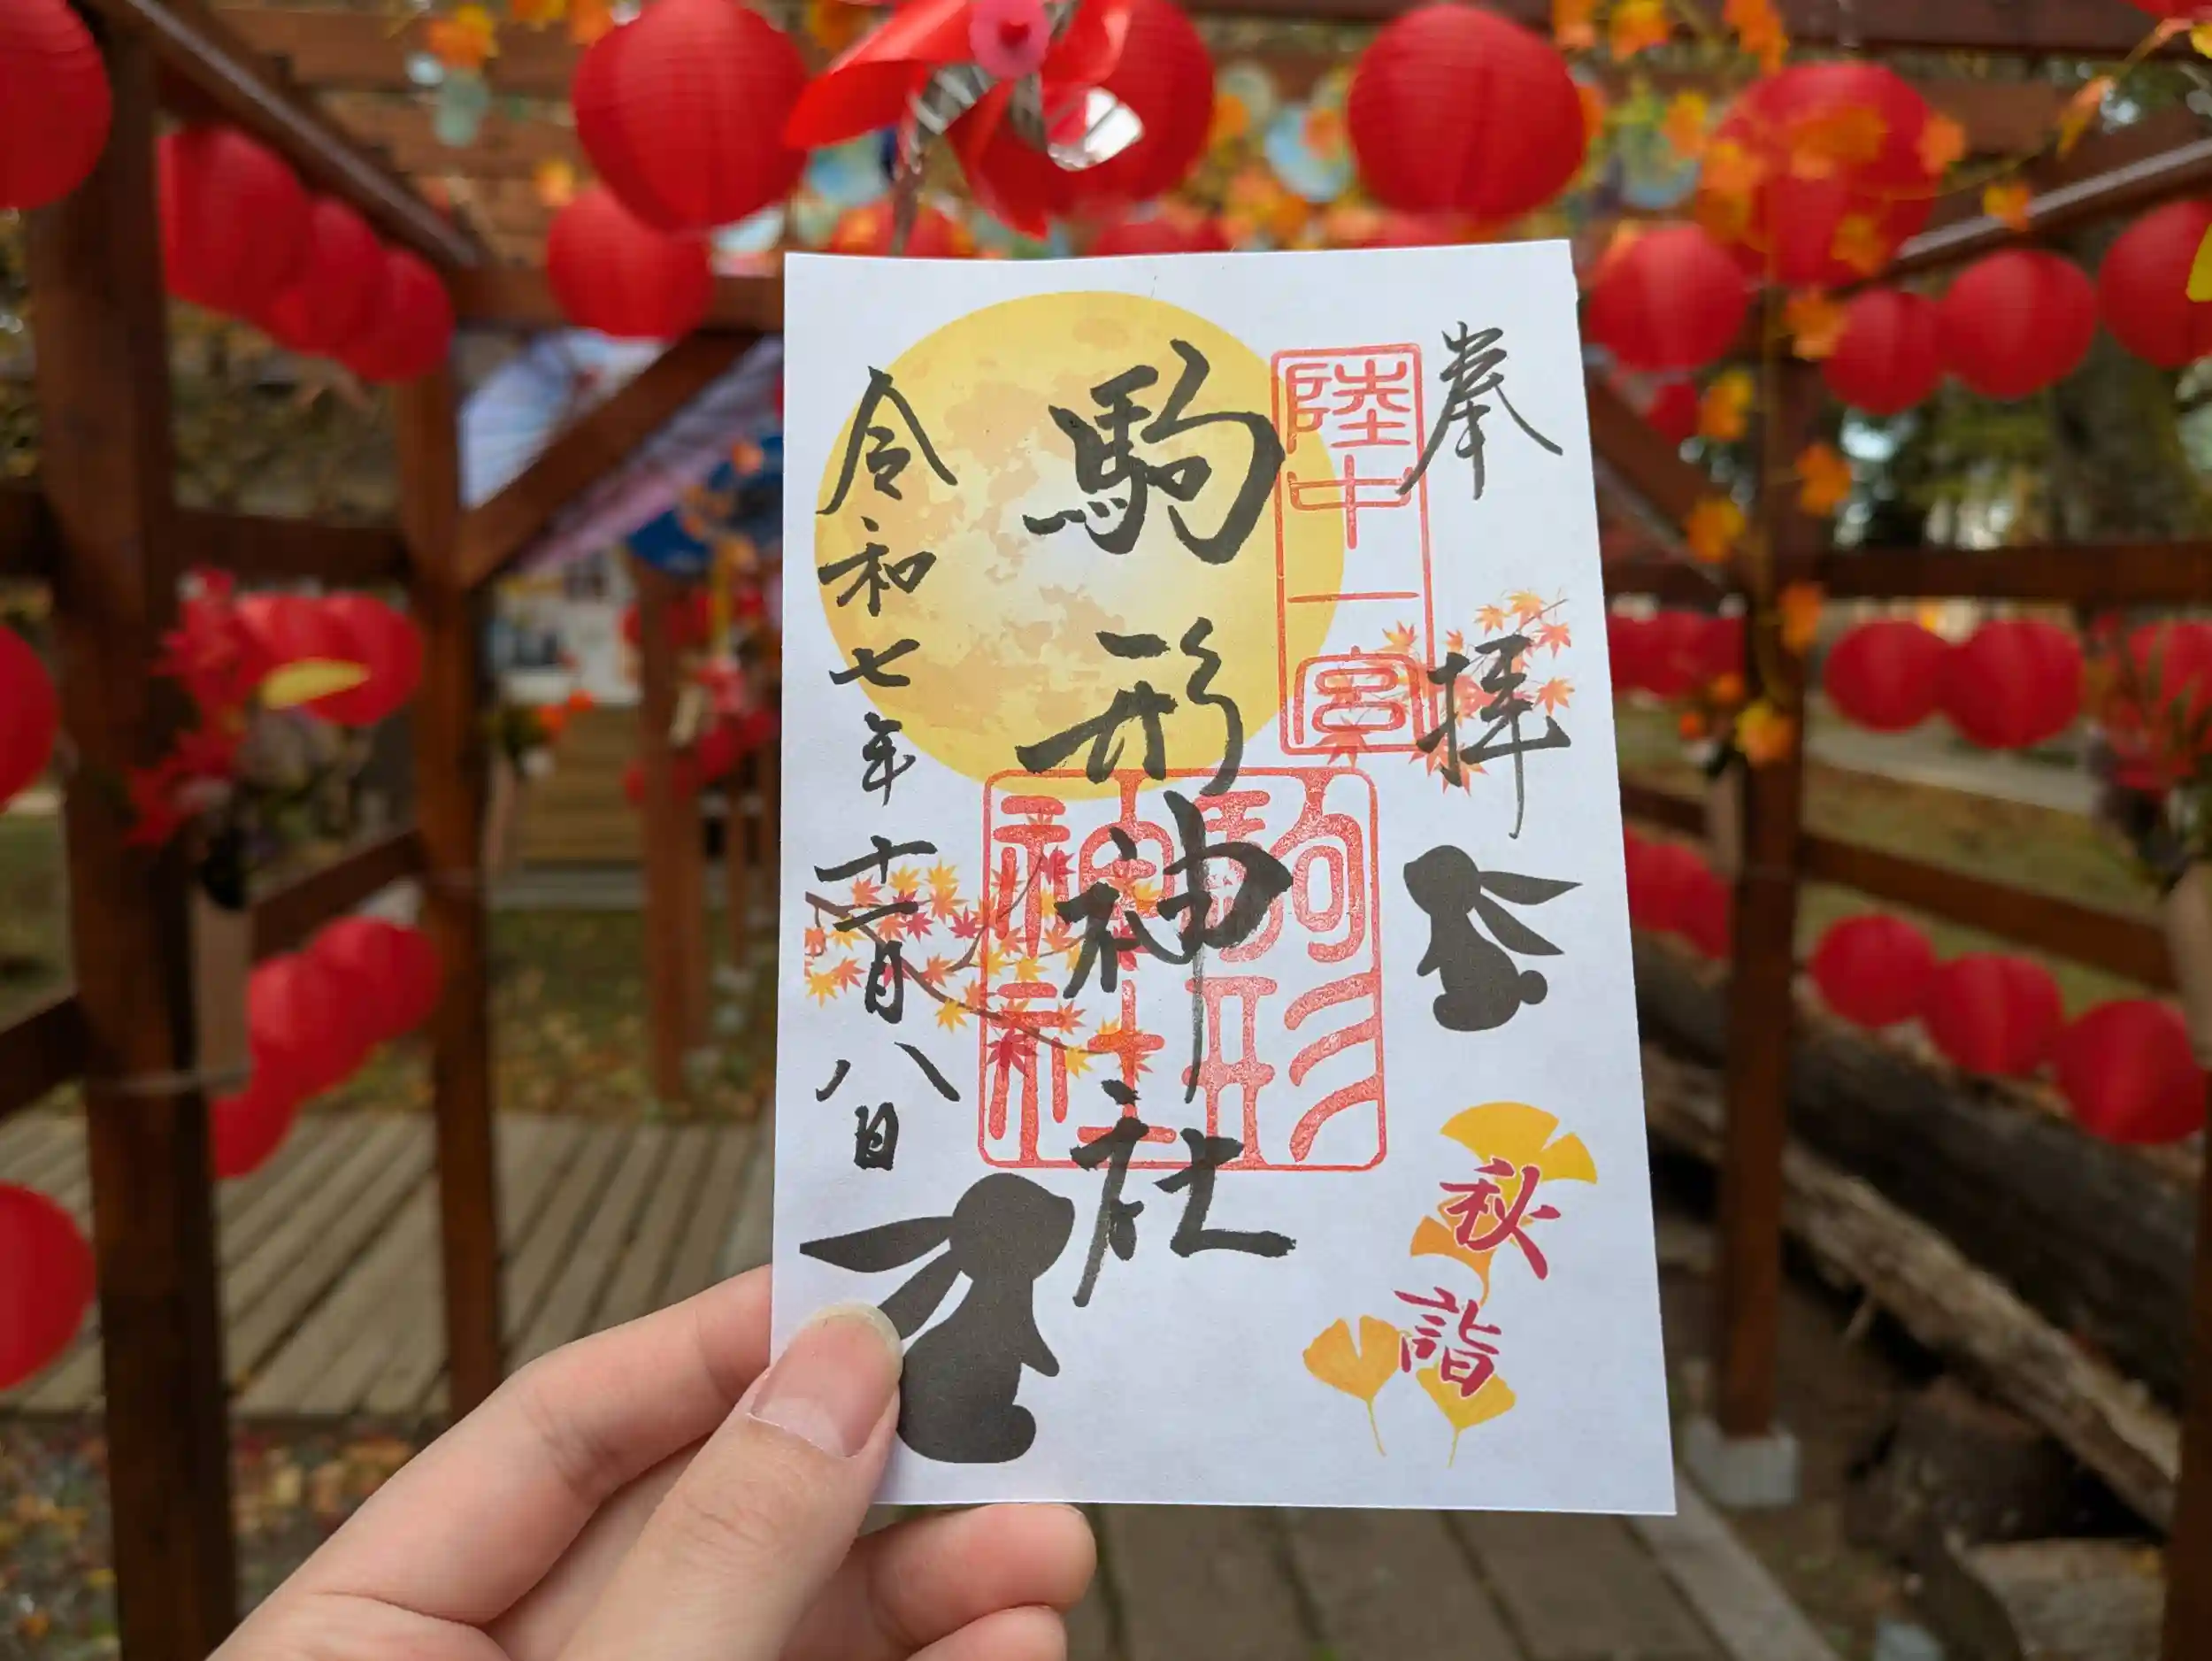 奉拝
秋詣
陸中一宮
駒形神社
駒形
神社
令和七年十一月八日